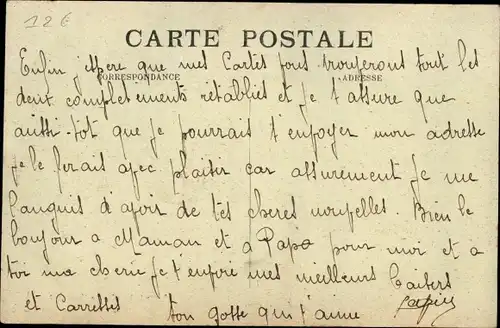 12 €
CARTE POSTALE
Enfin j'espere que mes Cartes vous trouveront tout les
CORRESPONDANCE
ADRESSE
deux completements rétablies et je t'assure que
aussi-tôt que je pourrait t'envoyer mon adresse
je le ferais avec plaisir car assurement je me
languis d'avoir de tes cheres nouvelles. Bien le
bonjour a Maman et a Papa pour moi et a
toi ma cherie je t'envoie mes meilleurs baisers
et Carresses ton gosse qui t'aime